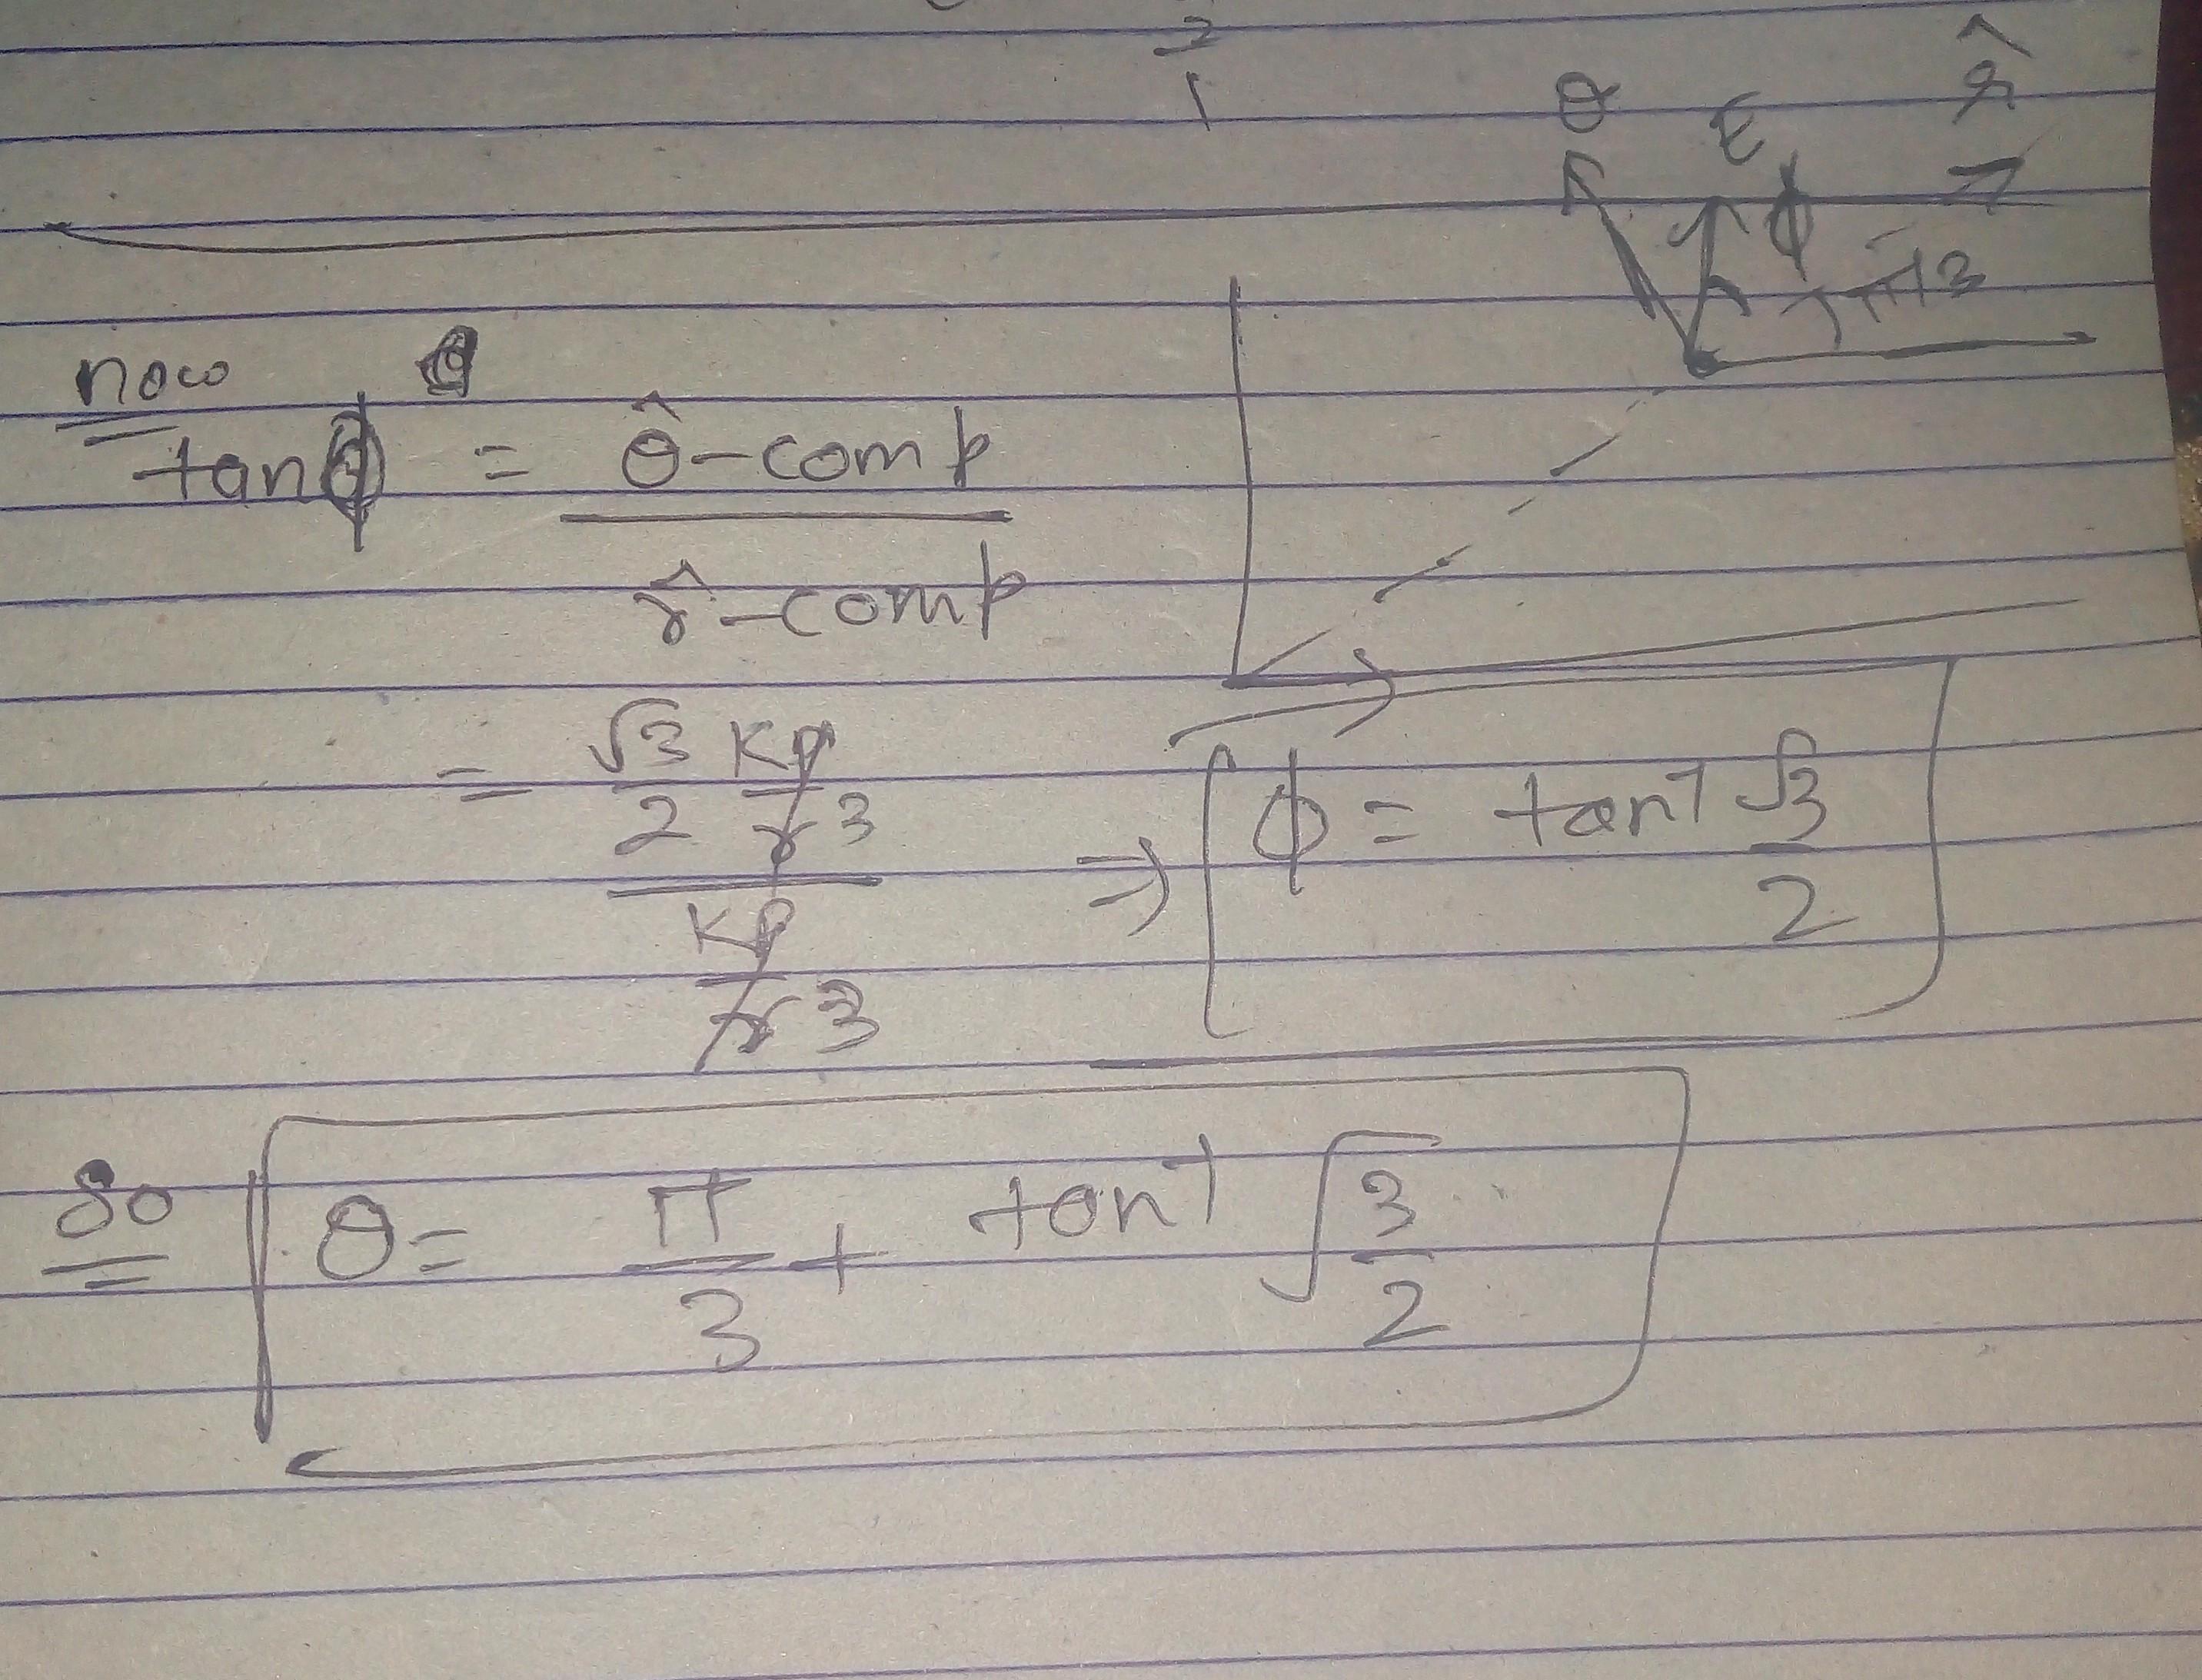 2
1
θ E r̂
ϕ
π/3
now
tanϕ = θ̂-comp
r̂-comp
= √3/2 Kp/r3
Kp/r3
⇒ ϕ = tan⁻¹ √3/2
So θ = π/3 + tan⁻¹ √3/2